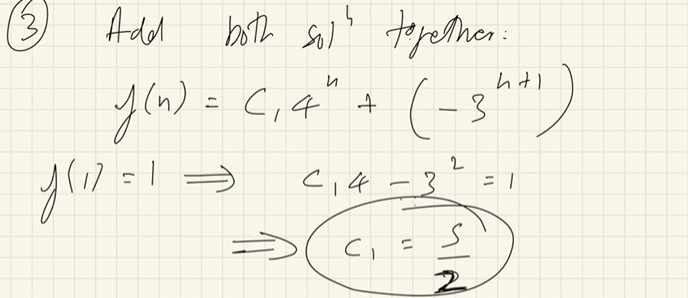 ③ Add both solⁿ together:
y(n) = C₁4ⁿ + (-3ⁿ⁺¹)
y(1) = 1 ⟹ C₁4 - 3² = 1
⟹ C₁ = 5/2